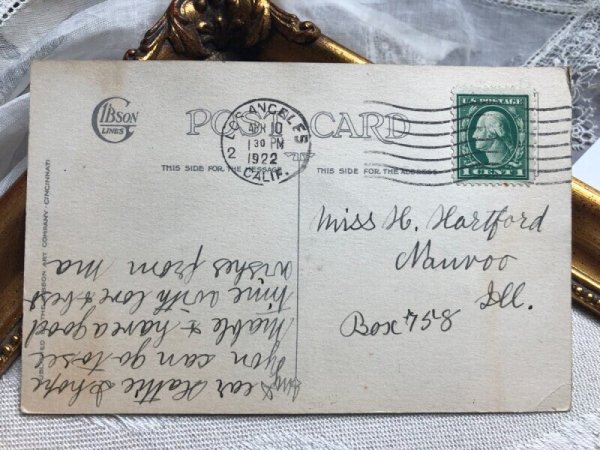 GIBSON
LINES
POST CARD
LOS ANGELES
APR 10
1 30 PM
1922
CALIF.
2
U.S. POSTAGE
1 CENT 1
THIS SIDE FOR THE MESSAGE
THIS SIDE FOR THE ADDRESS
Miss H. Hartford
Nauvoo
Ill.
Box 758
My Dear Hattie I hope
you can go to see
Mable & have a good
time with love & best
wishes from Ma
PUBLISHED BY THE GIBSON ART COMPANY · CINCINNATI